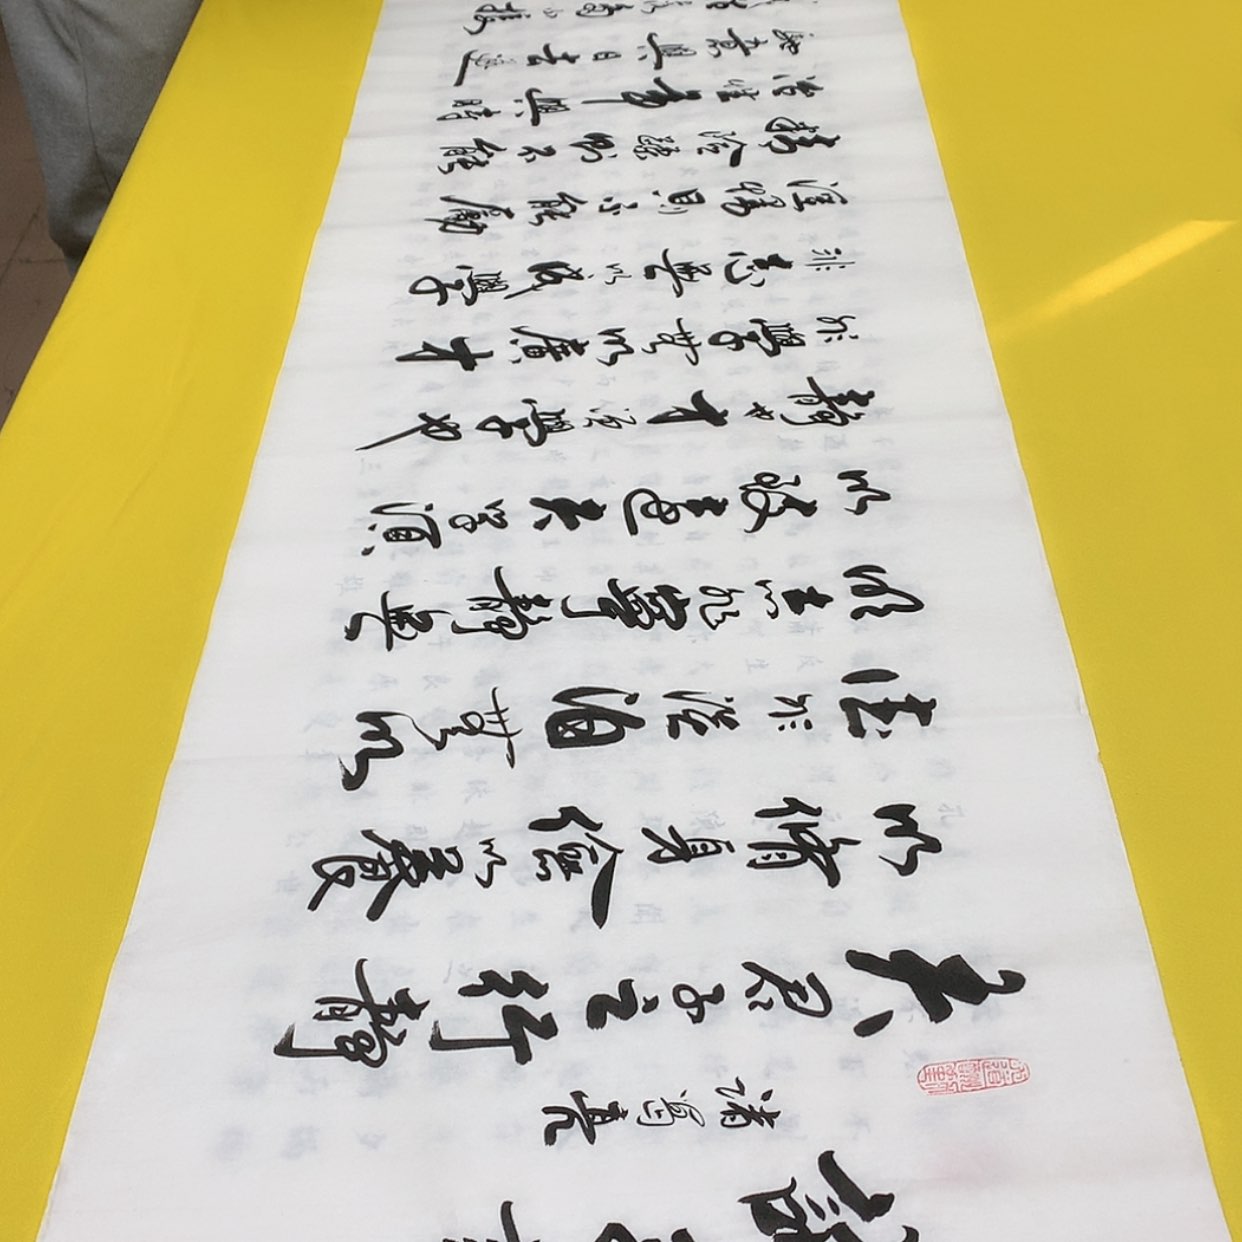 諸葛亮
夫君子之行靜
以脩身儉以養
德非澹泊無以
明志非寧靜無
以致遠夫學須
靜也才須學也
非學無以廣才
非志無以成學
淫慢則不能勵
精險躁則不能
治性年與時
馳意與日去遂
枯落多不接